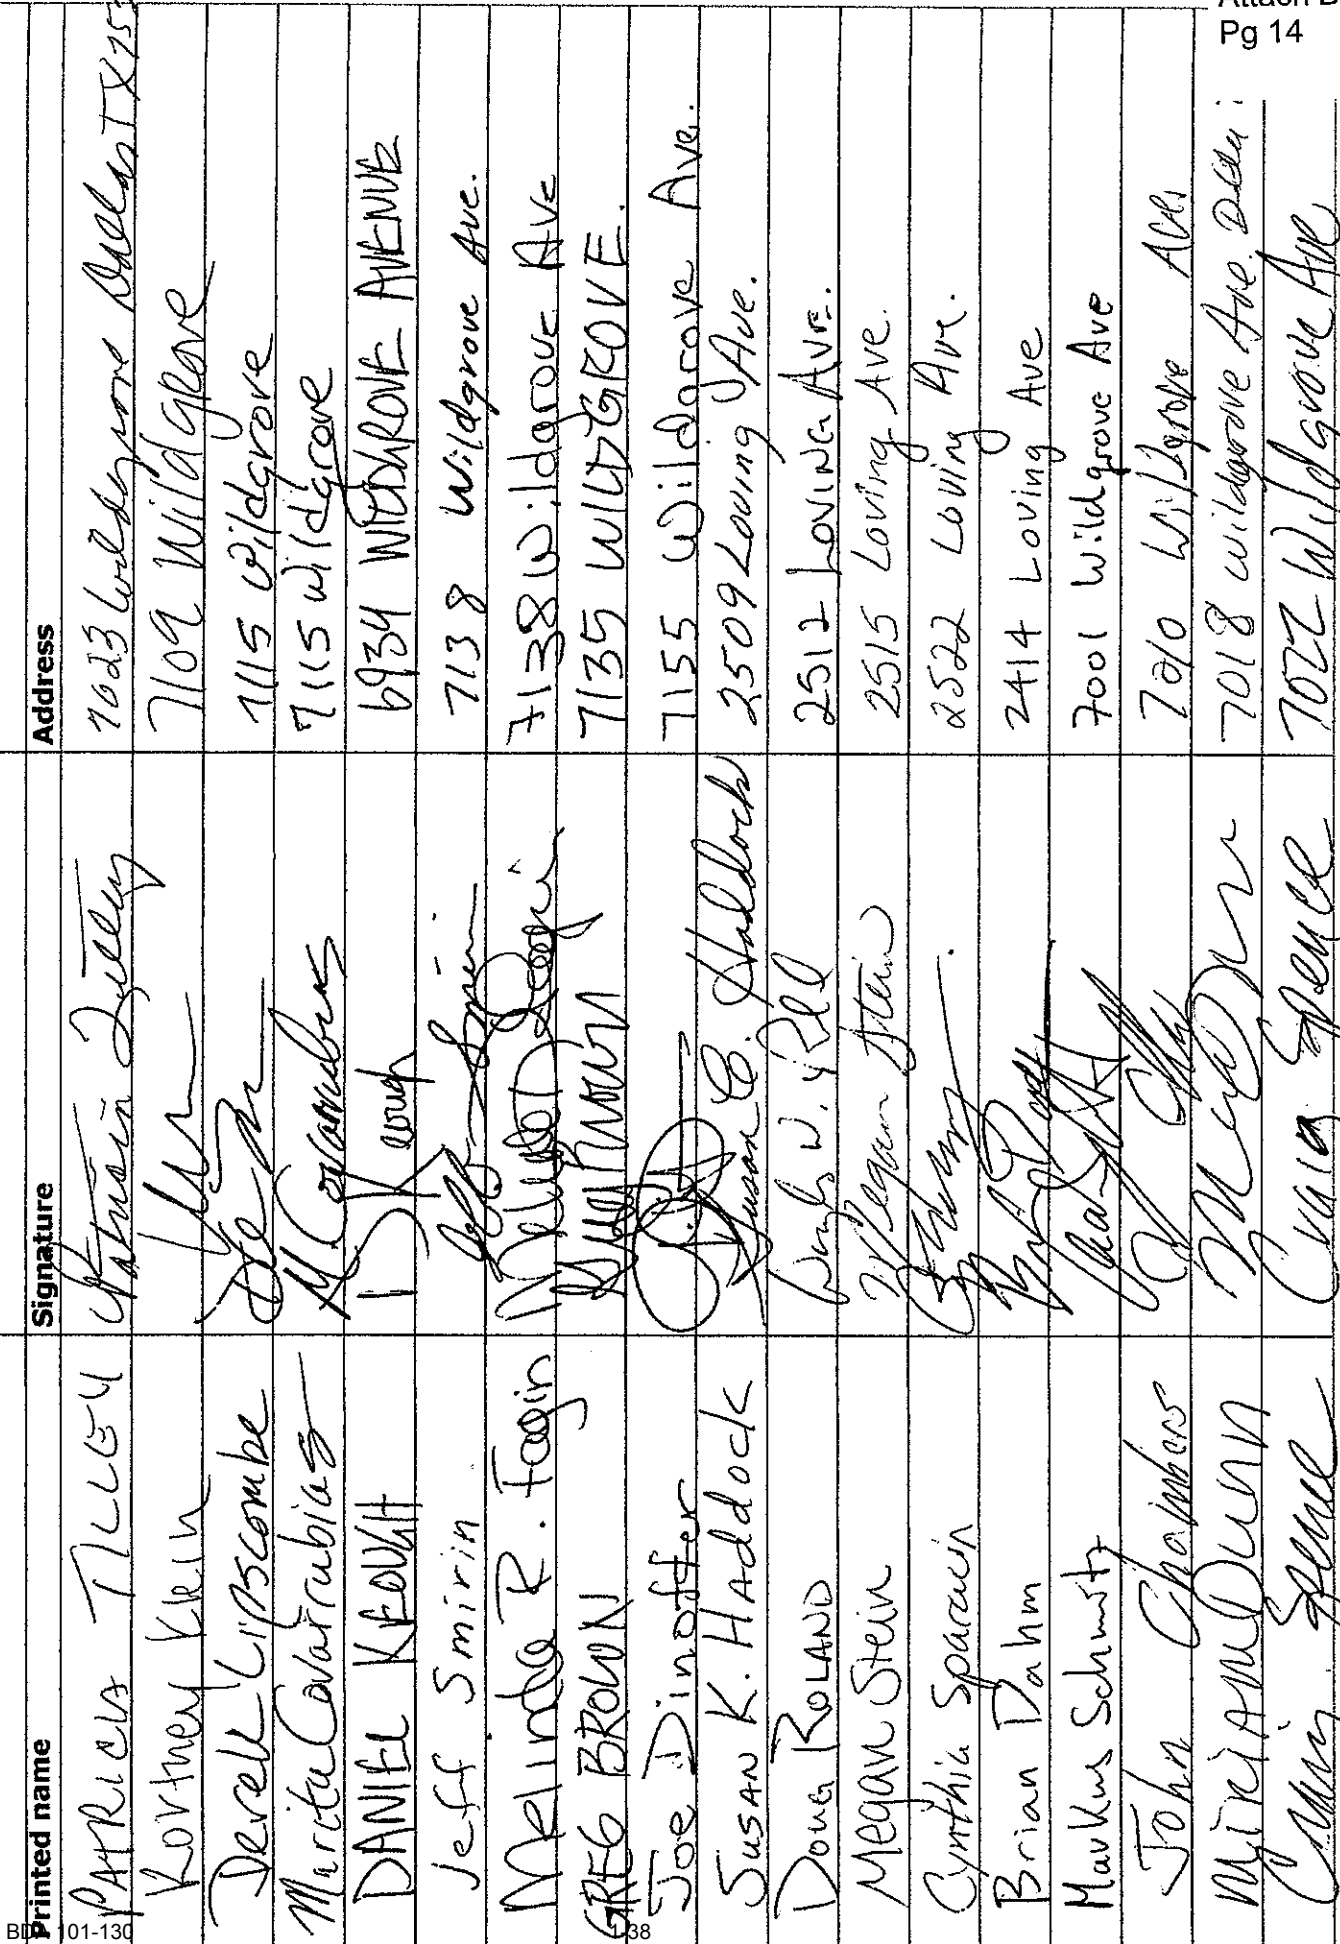 Pg 14
Printed name Signature Address
PATRICIA TILLEY Patricia Tilley 7023 Wildgrove Dallas TX 75
Kortney Klein 7109 Wildgrove
Derek Lipscombe 7115 Wildgrove
Marita Covarrubias M Covarrubias 7115 Wildgrove
DANIEL KEOUGH D Keough 6934 WILDGROVE AVENUE
Jeff Smirin Jeff Smirin 7138 Wildgrove Ave.
Melinda R. Fagin 7138 Wildgrove Ave
GREG BROWN 7135 WILDGROVE.
Joe Dinoffer 7155 Wildgrove Ave.
SUSAN K. HADDOCK Haddock 2509 Loving Ave.
DOUG ROLAND 2512 LOVING AVE.
Megan Stein Megan Stein 2515 Loving Ave.
Cynthia Sparacin 2522 Loving Ave.
Brian Dahm 2414 Loving Ave
Markus Schmitz 7001 Wildgrove Ave
John Chambers 7010 Wildgrove Ave.
Miriam Dunn 7018 Wildgrove Ave.
Craig Spence Craig Spence 7022 Wildgrove Ave
101-130
1-38